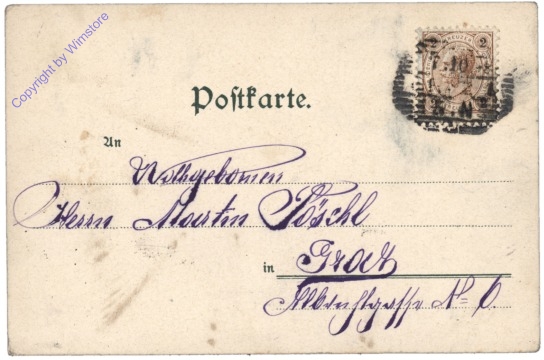 Copyright by Wimstore
2 KREUZER 2
Postkarte.
An
Wohlgeboren
Herrn Martin Pöschl
in Graz
Albrechtgasse No 6